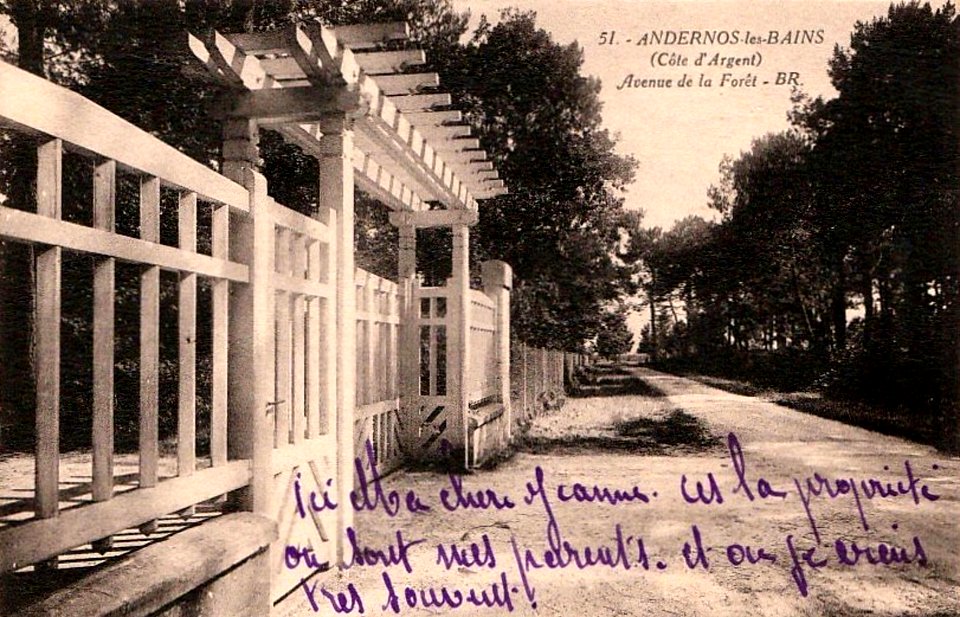 51. - ANDERNOS-les-BAINS
(Côte d'Argent)
Avenue de la Forêt - BR.
ici Ma chère Jeanne. est la propriété
ou sont mes parents. et ou je viens
tres souvent!